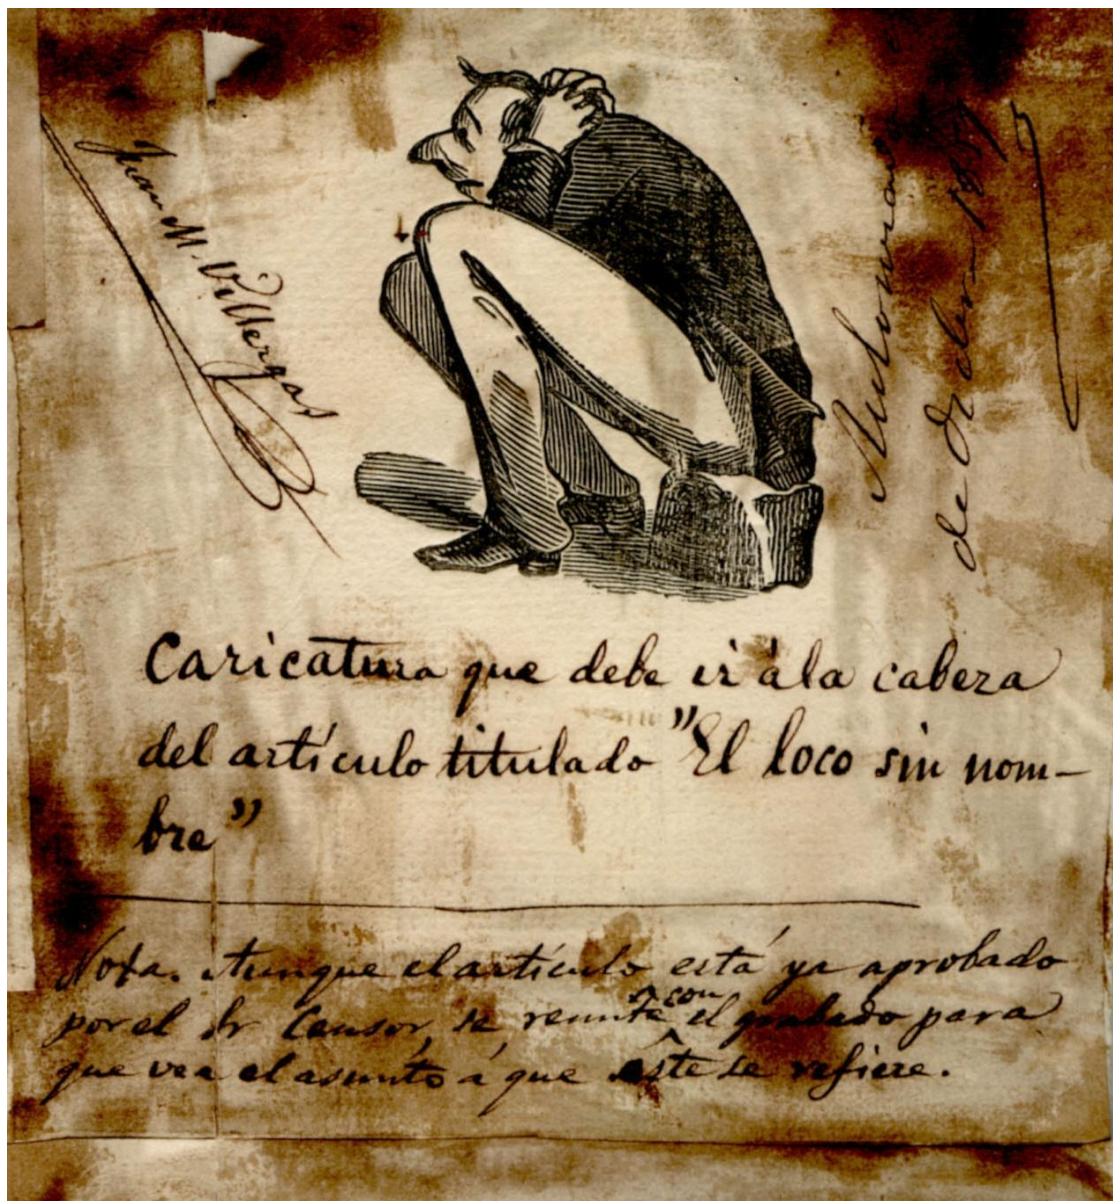 Juan M. Villergas
de 1857
Caricatura que debe ir á la cabeza
del artículo titulado "El loco sin nom-
bre"
Nota. Aunque el artículo está ya aprobado
por el Sr Censor, se remite con el grabado para
que vea el asunto á que éste se refiere.